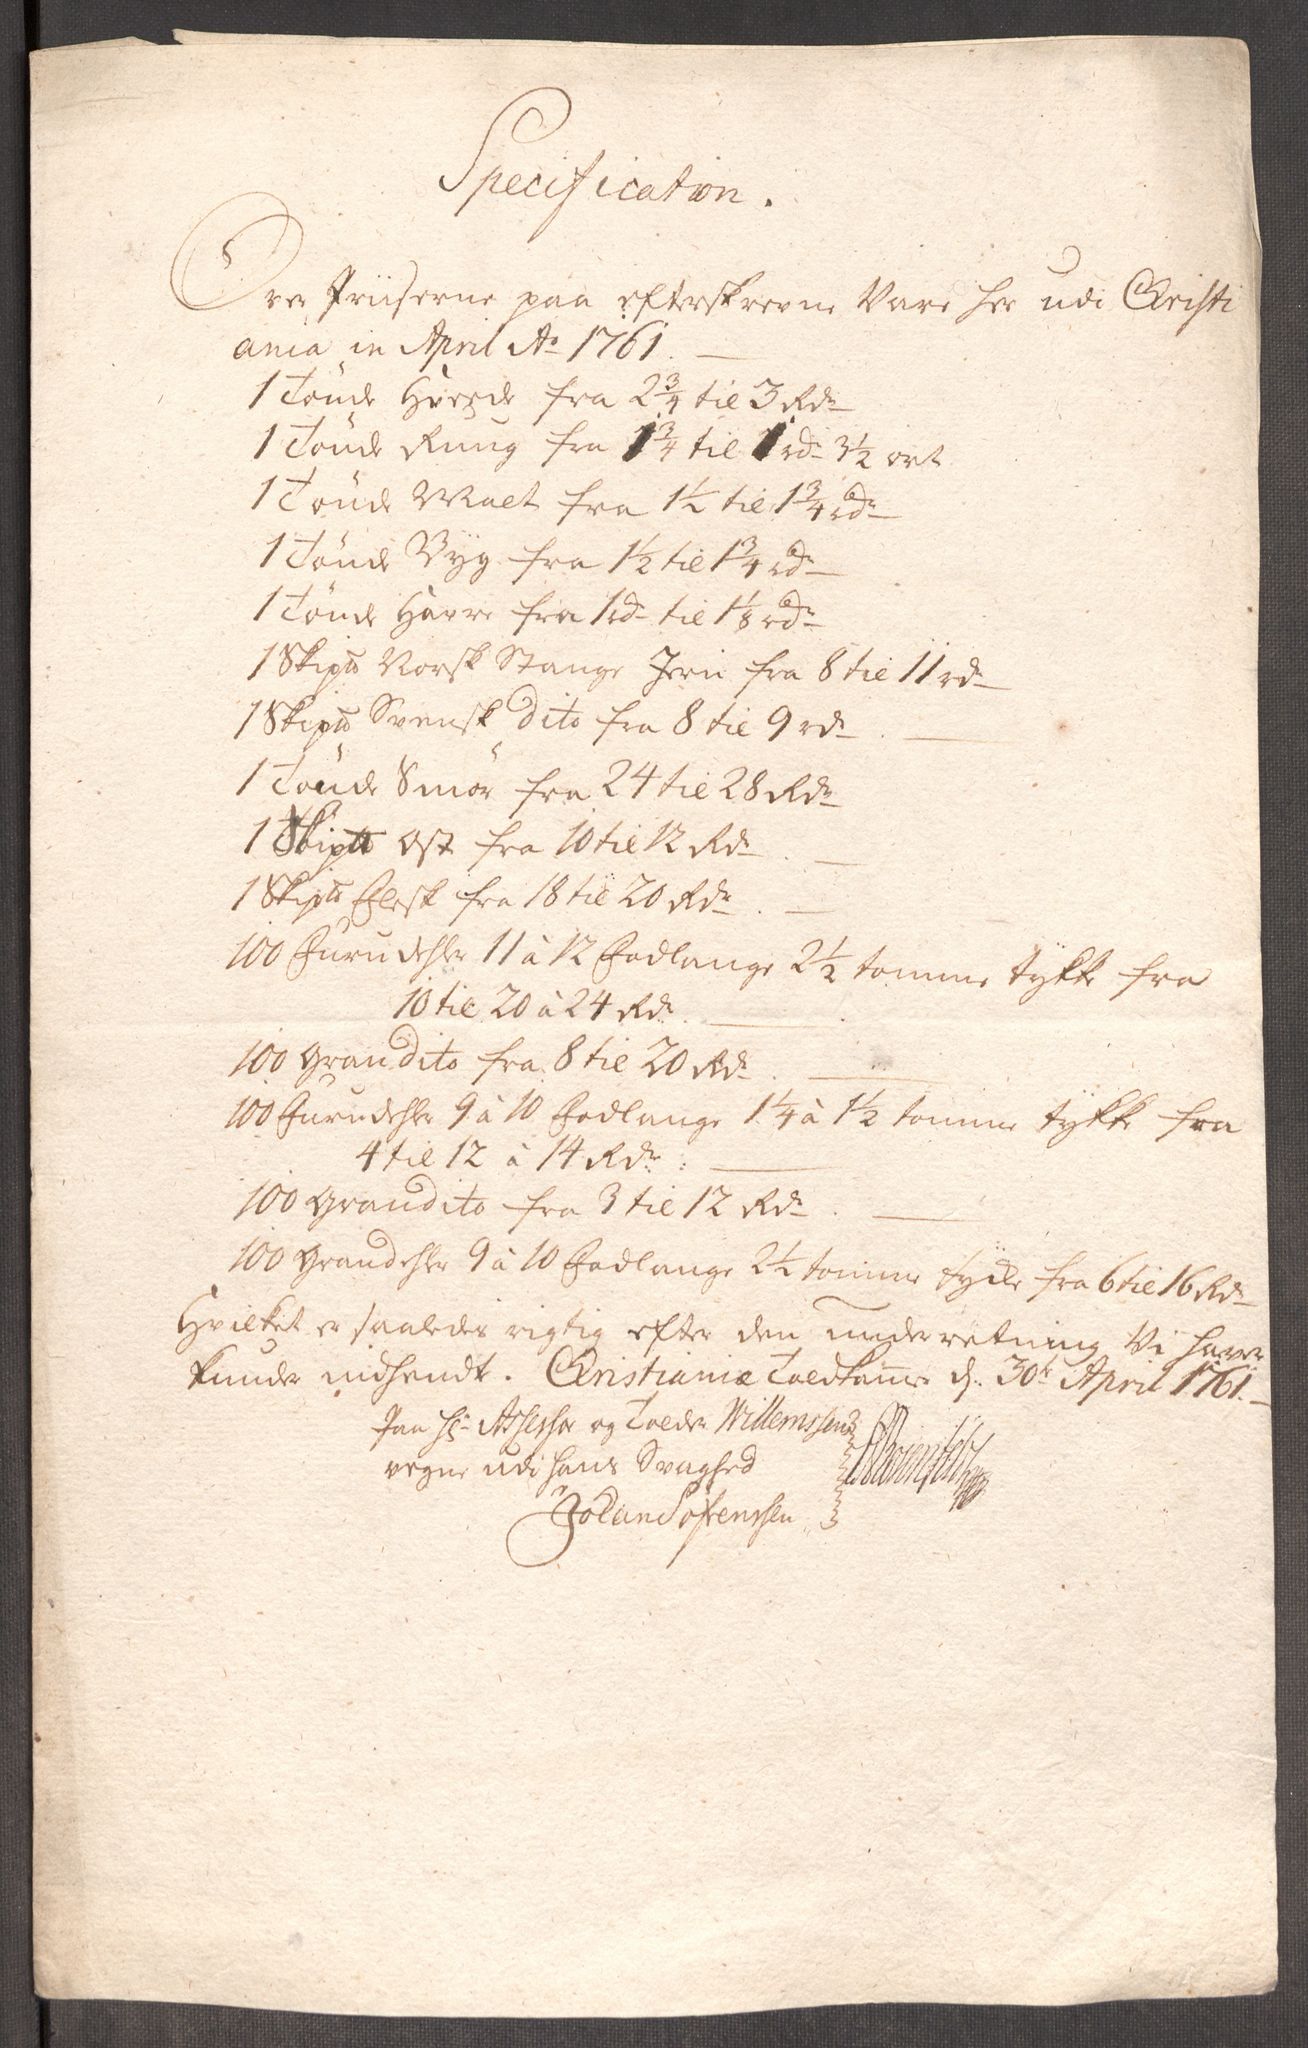 Specification.
Over Priiserne paa efterskrevne Vare her udi Christi
ania in April Ao 1761.
1 Tönde Hvede fra 2 3/4 til 3 Rdr
1 Tönde Rung fra 1 3/4 til 1 rdr 3 1/2 ort
1 Tönde Malt fra 1 1/2 til 1 3/4 rdr
1 Tönde Byg fra 1 1/2 til 1 3/4 rdr
1 Tönde Havre fra 1 rdr til 1 1/8 rdr
1 Skip℔ Norsk Stange Jern fra 8 til 11 rdr
1 Skip℔ Svensk dito fra 8 til 9 rdr.
1 Tönde Smör fra 24 til 28 Rdr
1 Skip℔ Ost fra 10 til 12 Rdr.
1 Skip℔ Flesk fra 18 til 20 Rdr.
100 Furudehler 11 à 12 Fodlange 2 1/2 tomme tykke fra
10 til 20 à 24 Rdr.
100 Gran dito fra 8 til 20 Rdr.
100 Furudehler 9 à 10 Fodlange 1 1/4 à 1 1/2 tomme tykke fra
4 til 12 à 14 Rdr:
100 Gran dito fra 3 til 12 Rdr.
100 Grandehler 9 à 10 Fodlange 2 1/2 tomme tycke fra 6 til 16 Rdr
Hvilket er saaledes rigtig efter den underretning Vi haver
kunde indhendt. Christiania Toldkammer d. 30te April 1761.
Paa Hr Assessor og Tolder Willemssens
vegne udi hans Svaghed
Johan Sörenssen